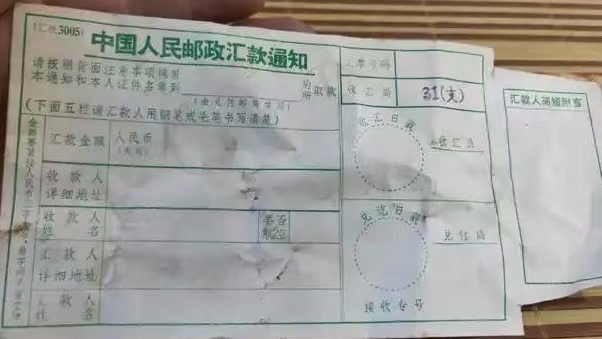 (汇款3005)
中国人民邮政汇款通知
请按照背面注意事项携带
本通知和本人证件名章到
前
所取款
(由兑付邮局填写)
(下面五栏请汇款人用钢笔或毛笔书写清楚)
汇款金额
人民币
(大写)
收款人
详细地址
收款人
姓名
汇款人
详细地址
汇款人
姓名
汇票号码
收汇局
31(支)
兑汇日戳
收汇员
兑讫日戳
兑付员
接收专号
汇款人简短附言